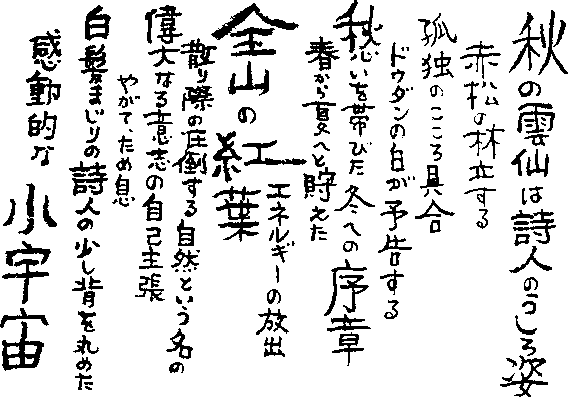 秋の雲仙は詩人のうしろ姿
赤松の林立する
孤独のこころ具合
ドウダンの白が予告する
愁いを帯びた冬への序章
春から夏へと貯えた
全山の紅葉
エネルギーの放出
散り際の圧倒する自然という名の
偉大なる意志の自己主張
やがて、ため息
白髪まじりの詩人の少し背を丸めた
感動的な小宇宙